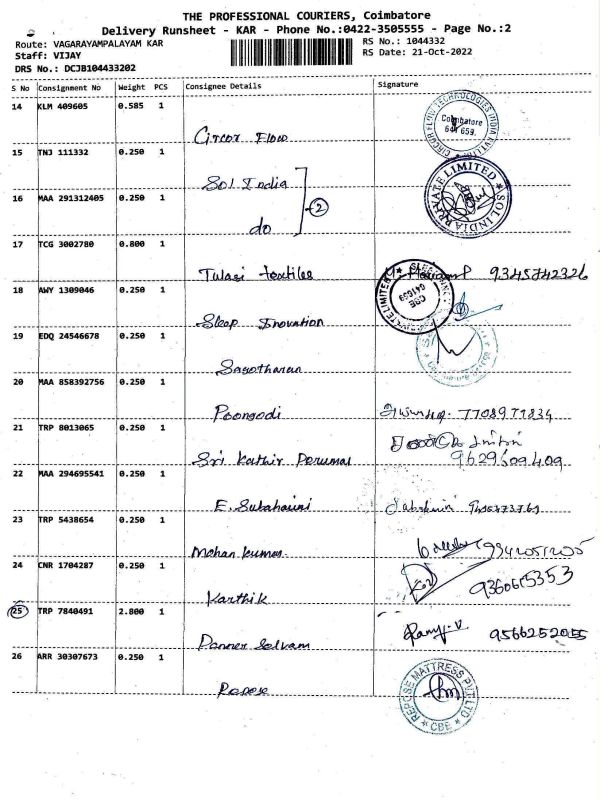 THE PROFESSIONAL COURIERS, Coimbatore
Delivery Runsheet - KAR - Phone No.:0422-3505555 - Page No.:2
Route: VAGARAYAMPALAYAM KAR
RS No.: 1044332
Staff: VIJAY
RS Date: 21-Oct-2022
DRS No.: DCJB104433202
S No Consignment No Weight PCS Consignee Details Signature
14 KLM 409605 0.585 1
Circor Flow
CIRCOR FLOW TECHNOLOGIES INDIA PVT LTD
Coimbatore
641 659.
15 TNJ 111332 0.250 1
Sol India
SOL INDIA PRIVATE LIMITED
16 MAA 291312405 0.250 1
do
2
17 TCG 3002780 0.800 1
Tulasi textiles 9345742326
18 AWY 1309046 0.250 1
Sleep Inovation
CBE
641659
19 EDQ 24546678 0.250 1
Sagotharan
20 MAA 858392756 0.250 1
Poongodi 7708977834
21 TRP 8013065 0.250 1
Sri Kathir Perumal 9629609409
22 MAA 294695541 0.250 1
E. Subahasini
23 TRP 5438654 0.250 1
Mohan kumar
24 CNR 1704287 0.250 1
Karthik 9360615353
25 TRP 7840491 2.800 1
Panner Selvam Ramji.V 9566252055
26 ARR 30307673 0.250 1
Repose
REPOSE MATTRESS PVT LTD
CBE